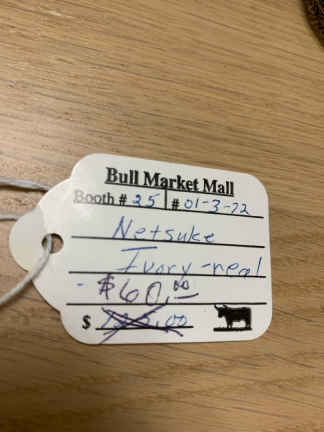 Bull Market Mall
Booth # 25 # 01-3-72
Netsuke
Ivory-real
- $60.00
$ 125.00